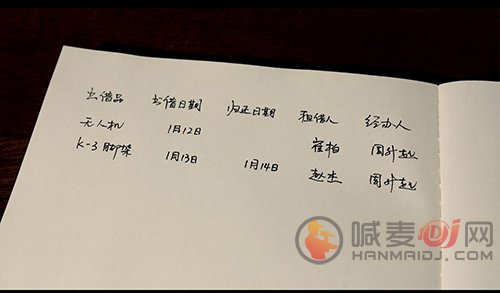 出借品 出借日期 归还日期 租借人 经办人
无人机 1月12日 崔柏 周升起
K-3脚架 1月13日 1月14日 赵杰 周升起
喊麦DJ网
HANMAIDJ.COM